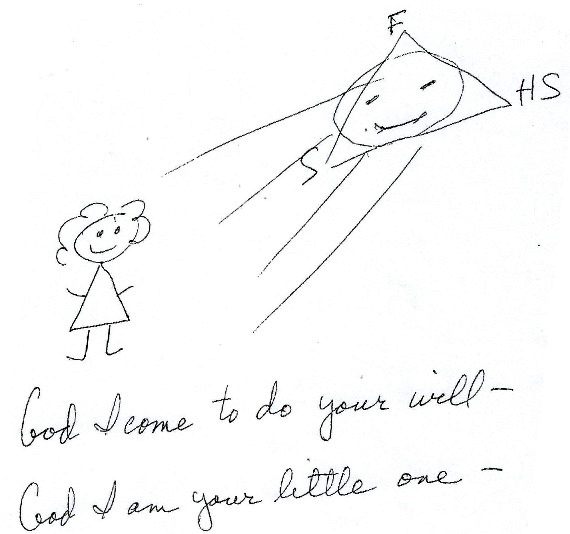 F
HS
S
God I come to do your will –
God I am your little one –